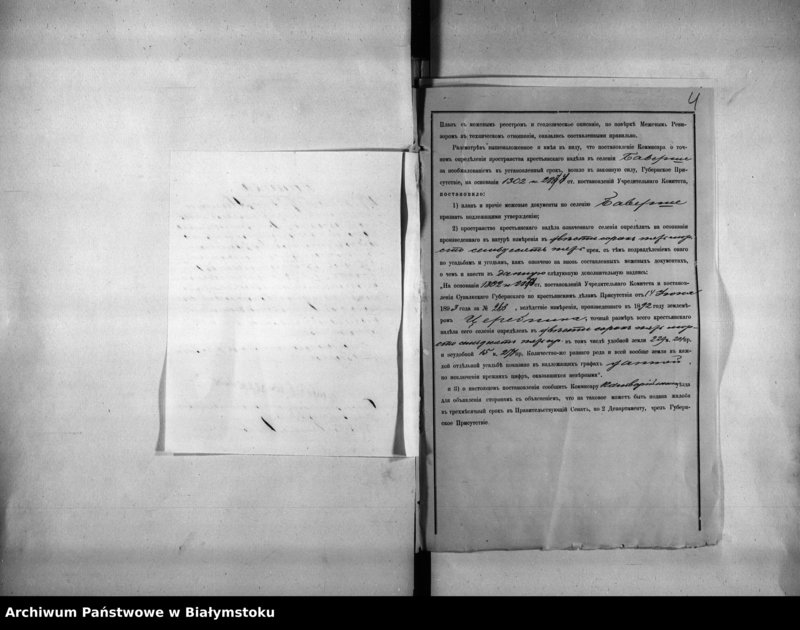 4
Планъ съ межевымъ реестромъ и геодезическое описаніе, по повѣркѣ Межевымъ Реви-
зоромъ въ техническомъ отношеніи, оказались составленными правильно.
Разсмотрѣвъ вышеизложенное и имѣя въ виду, что постановленіе Комисара о точ-
номъ опредѣленіи пространства крестьянскаго надѣла въ селеніи Баверше
за необжалованіемъ въ установленный срокъ, вошло въ законную силу, Губернское При-
сутствіе, на основаніи 1302 и ст. постановленій Учредительнаго Комитета,
постановило:
1) планъ и прочіе межевые документы по селенію Баверше
признать подлежащими утвержденію;
2) пространство крестьянскаго надѣла означеннаго селенія опредѣлить на основаніи
произведеннаго въ натурѣ измѣренія въ двѣсти сорокъ три мор.
сто семьдесятъ три прен. съ тѣмъ подраздѣленіемъ онаго
по усадьбамъ и угодьямъ, какъ означено на вновь составленныхъ межевыхъ документахъ,
о чемъ и внести въ данную слѣдующую дополнительную надпись:
„На основаніи 1302 и ст. постановленій Учредительнаго Комитета и постанов-
ленія Сувалкскаго Губернскаго по крестьянскимъ дѣламъ Присутствія отъ 14 Іюня
1893 года за № 263, вслѣдствіе измѣренія, произведеннаго въ 1892 году землемѣ-
ромъ точный размѣръ всего крестьянскаго
надѣла сего селенія опредѣленъ въ двѣсти сорокъ три мор.
сто семьдесятъ три пр. въ томъ числѣ удобной земли
и неудобной 15 м. Количество же разнаго рода и всей вообще земли въ каж-
дой отдѣльной усадьбѣ показано въ надлежащихъ графахъ данной,
по исключеніи прежнихъ цифръ, оказавшихся невѣрными“.
и 3) о настоящемъ постановленіи сообщить Комисару Кальварійскаго уѣзда
для объявленія сторонамъ съ объясненіемъ, что на таковое можетъ быть подана жалоба
въ трехмѣсячный срокъ въ Правительствующій Сенатъ, по 2 Департаменту, чрезъ Губерн-
ское Присутствіе.
Archiwum Państwowe w Białymstoku